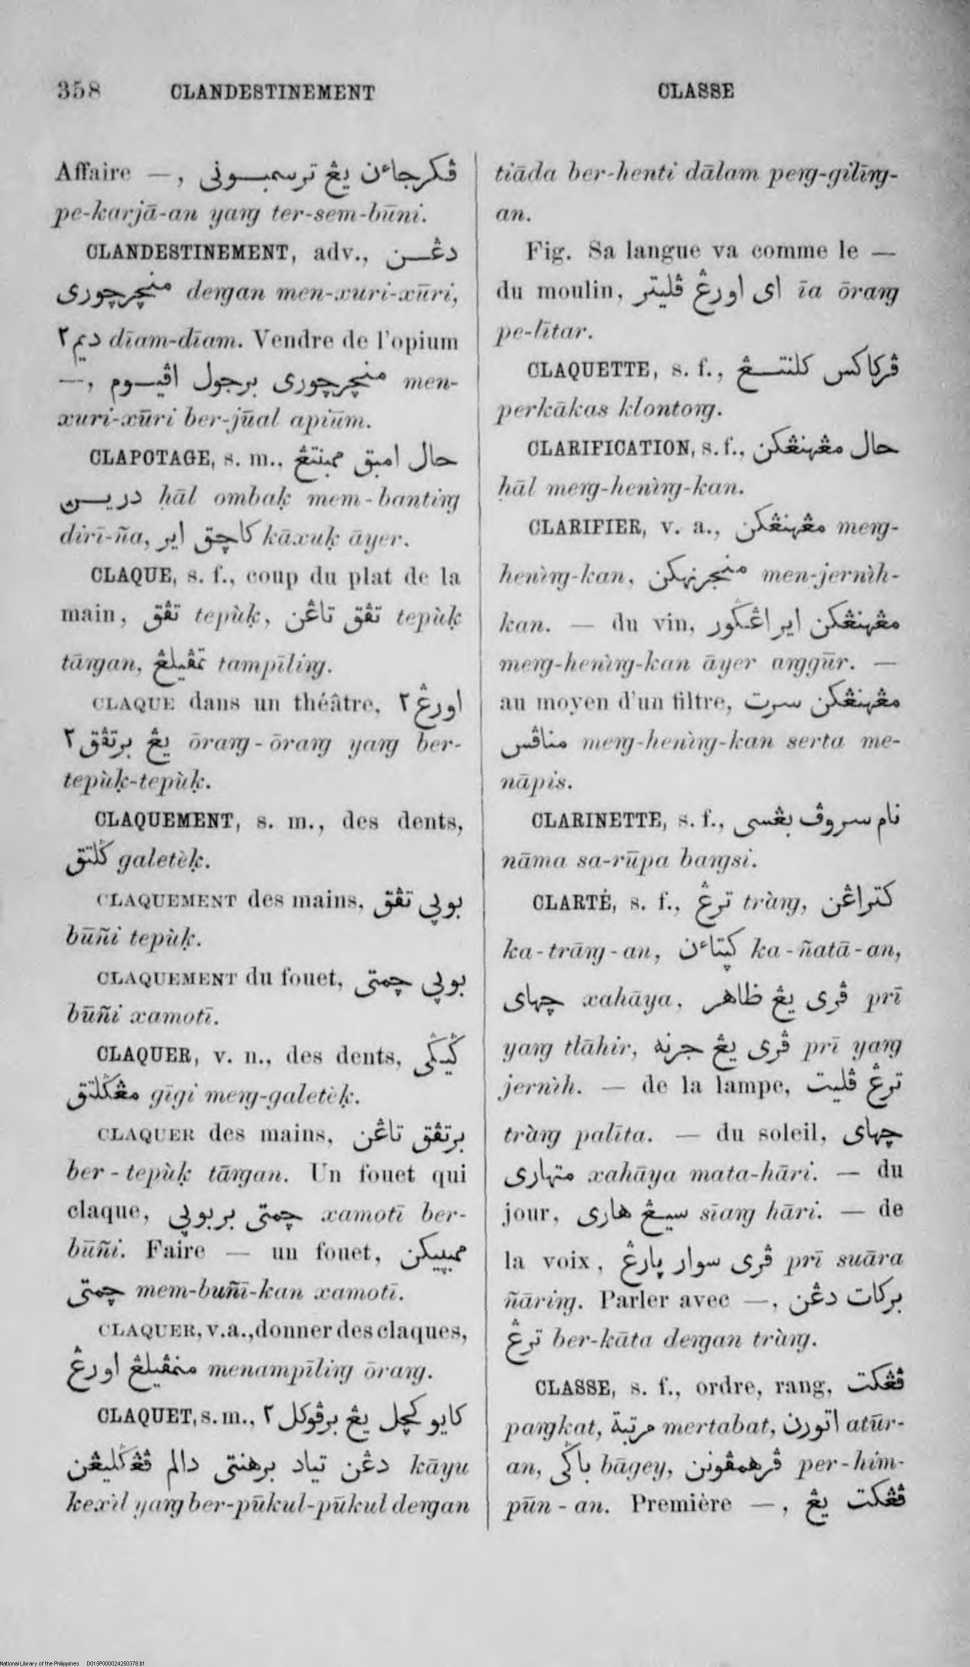 358 CLANDESTINEMENT CLASSE
Affaire —, ڤكرجاءن يڠ ترسمبوني
pe-karjā-an yaŋg ter-sem-būni.
CLANDESTINEMENT, adv., دڠن
منچرچوري deŋgan men-xuri-xūri,
ديم٢ dīam-dīam. Vendre de l'opium
—, منچرچوري برجول اڤيوم men-
xuri-xūri ber-jūal apiūm.
CLAPOTAGE, s. m., حال امبق ممبنتڠ
دريـن ḥāl ombaḳ mem-bantiŋg
dirī-ña, كاچق اير kāxuḳ āyer.
CLAQUE, s. f., coup du plat de la
main, تڤق tepùḳ, تڤق تاڠن tepùḳ
tāŋgan, تمڤيلڠ tampīliŋg.
CLAQUE dans un théâtre, اورڠ٢
يڠ برتڤق٢ ōraŋg-ōraŋg yaŋg ber-
tepùḳ-tepùḳ.
CLAQUEMENT, s. m., des dents,
ݢلتق galetèḳ.
CLAQUEMENT des mains, بوڽي تڤق
būñi tepùḳ.
CLAQUEMENT du fouet, بوڽي چمتي
būñi xamotī.
CLAQUER, v. n., des dents, ݢيݢي
مڠݢلتق gīgi meŋg-galetèḳ.
CLAQUER des mains, برتڤق تاڠن
ber-tepùḳ tāŋgan. Un fouet qui
claque, چمتي بربوڽي xamotī ber-
būñi. Faire — un fouet, ممبڽيكن
چمتي mem-buñī-kan xamotī.
CLAQUER, v.a., donner des claques,
منمڤيلڠ اورڠ menampīliŋg ōraŋg.
CLAQUET, s. m., كايو كچل يڠ برڤوكل٢
دڠن تياد برهنتي دالم ڤڠݢليڠن kāyu
kexìl yaŋg ber-pūkul-pūkul deŋgan
tiāda ber-henti dālam peŋg-gilīŋg-
an.
Fig. Sa langue va comme le —
du moulin, اي اورڠ ڤليتر īa ōraŋg
pe-lītar.
CLAQUETTE, s. f., ڤركاكس كلنتڠ
perkākas klontoŋg.
CLARIFICATION, s. f., حال مڠهنڠكن
ḥāl meŋg-henìŋg-kan.
CLARIFIER, v. a., مڠهنڠكن meŋg-
henìŋg-kan, منجرنهكن men-jernìh-
kan. — du vin, مڠهنڠكن اير اڠݢور
meŋg-henìŋg-kan āyer aŋggūr. —
au moyen d'un filtre, مڠهنڠكن سرت
مناڤس meŋg-henìŋg-kan serta me-
nāpis.
CLARINETTE, s. f., نام سروڤ بڠسي
nāma sa-rūpa baŋgsi.
CLARTÉ, s. f., ترڠ tràŋg, كتراڠن
ka-trāŋg-an, كڽتاءن ka-ñatā-an,
چهاي xahāya, ڤري يڠ ظاهر prī
yaŋg tlāhir, ڤري يڠ جرنه prī yaŋg
jernìh. — de la lampe, ترڠ ڤليت
tràŋg palīta. — du soleil, چهاي
متهاري xahāya mata-hāri. — du
jour, سيڠ هاري sīaŋg hāri. — de
la voix, ڤري سوار ڽارڠ prī suāra
ñāriŋg. Parler avec —, بركات دڠن
ترڠ ber-kāta deŋgan tràŋg.
CLASSE, s. f., ordre, rang, ڤڠكت
paŋgkat, مرتبة mertabat, اتورن atūr-
an, باݢي bāgey, ڤرهمڤونن per-him-
pūn-an. Première —, ڤڠكت يڠ
National Library of the Philippines